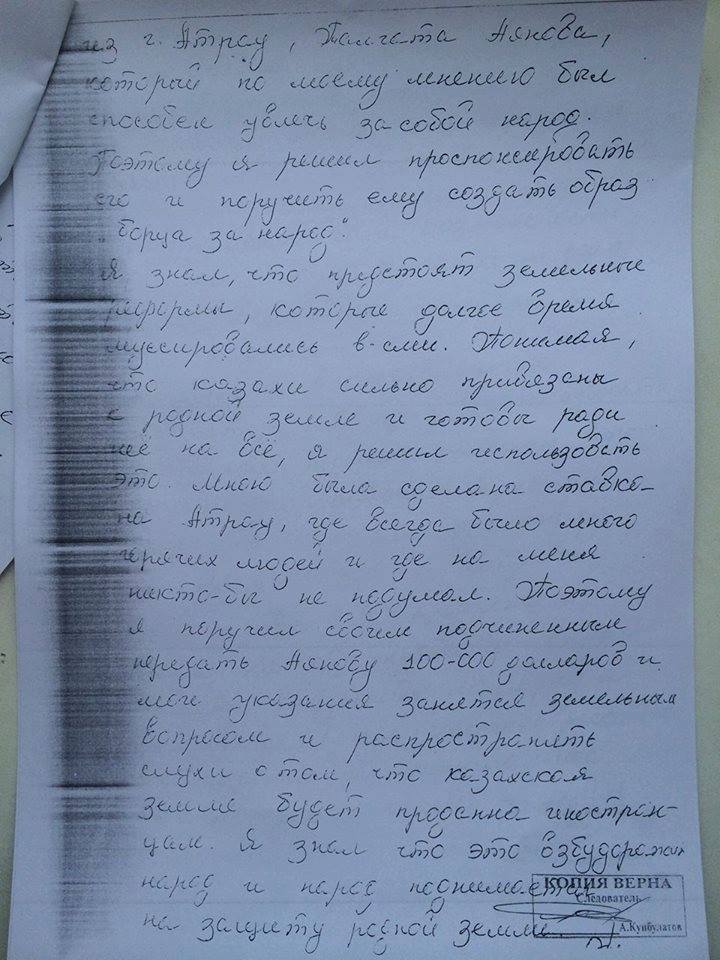 из г. Атрау, Талгата Аянова,
который по моему мнению был
способен увлечь за собой народ.
Поэтому я решил проспонсировать
его и поручить ему создать образ
"борца за народ".
Я знал, что предстоят земельные
реформы, которые долгое время
муссировались в сми. Понимая,
что казахи сильно привязаны
к родной земле и готовы ради
неё на всё, я решил использовать
это. Мною была сделана ставка
на Атрау, где всегда было много
горячих людей и где на меня
никто-бы не подумал. Поэтому
я поручил своим подчиненным
передать Аянову 100-000 долларов и
мои указания занятся земельным
вопросом и распространять
слухи о том, что казахская
земля будет проданна иностран-
цам. Я знал что это взбудоражит
народ и народ поднимается
на защиту родной земли.
КОПИЯ ВЕРНА
Следователь
А.Кунбулатов